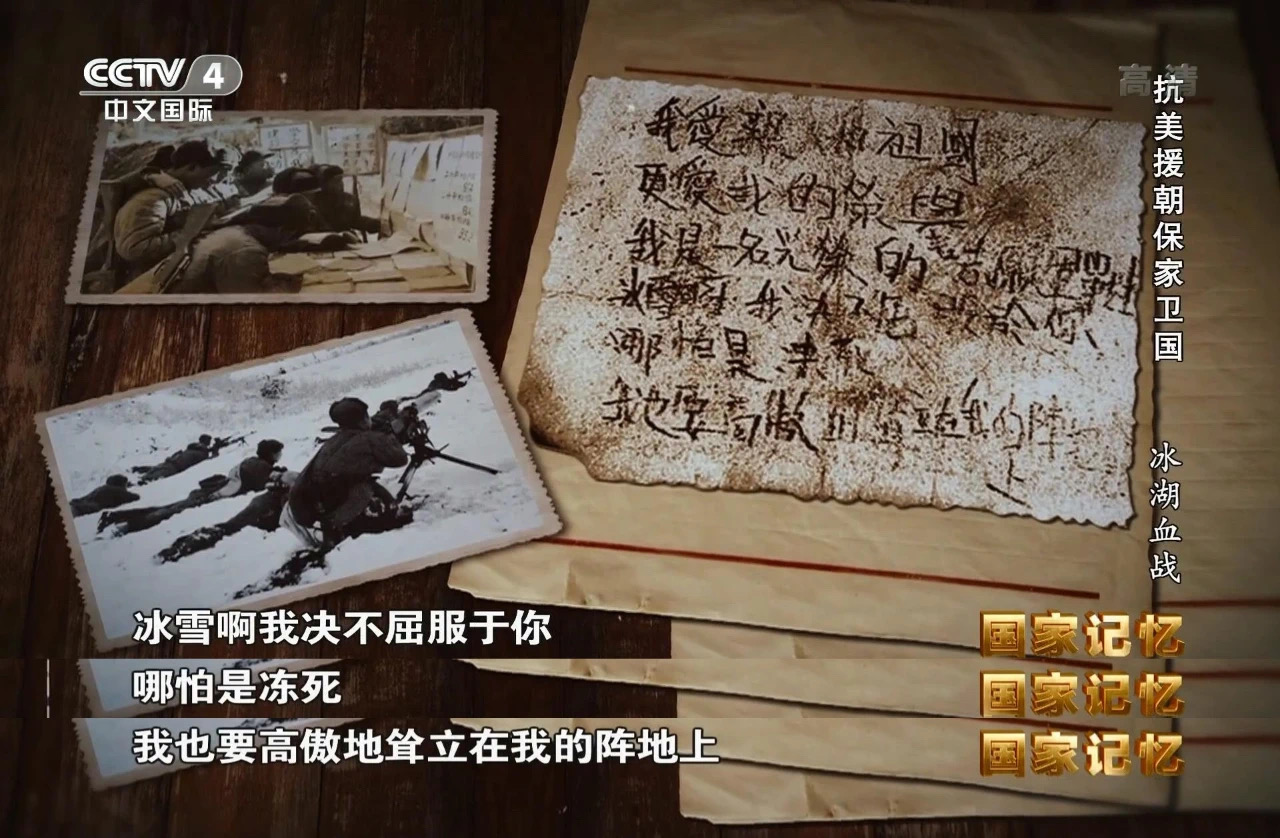 CCTV 4
中文国际
高清
抗美援朝保家卫国
冰湖血战
我愛親 的祖國
更愛我的榮譽
我是一名光榮的志願軍戰士
冰雪啊 我决不屈服於你
哪怕是凍死
我也要高傲的耸立在我的阵地上
冰雪啊我决不屈服于你
国家记忆
哪怕是冻死
国家记忆
我也要高傲地耸立在我的阵地上
国家记忆